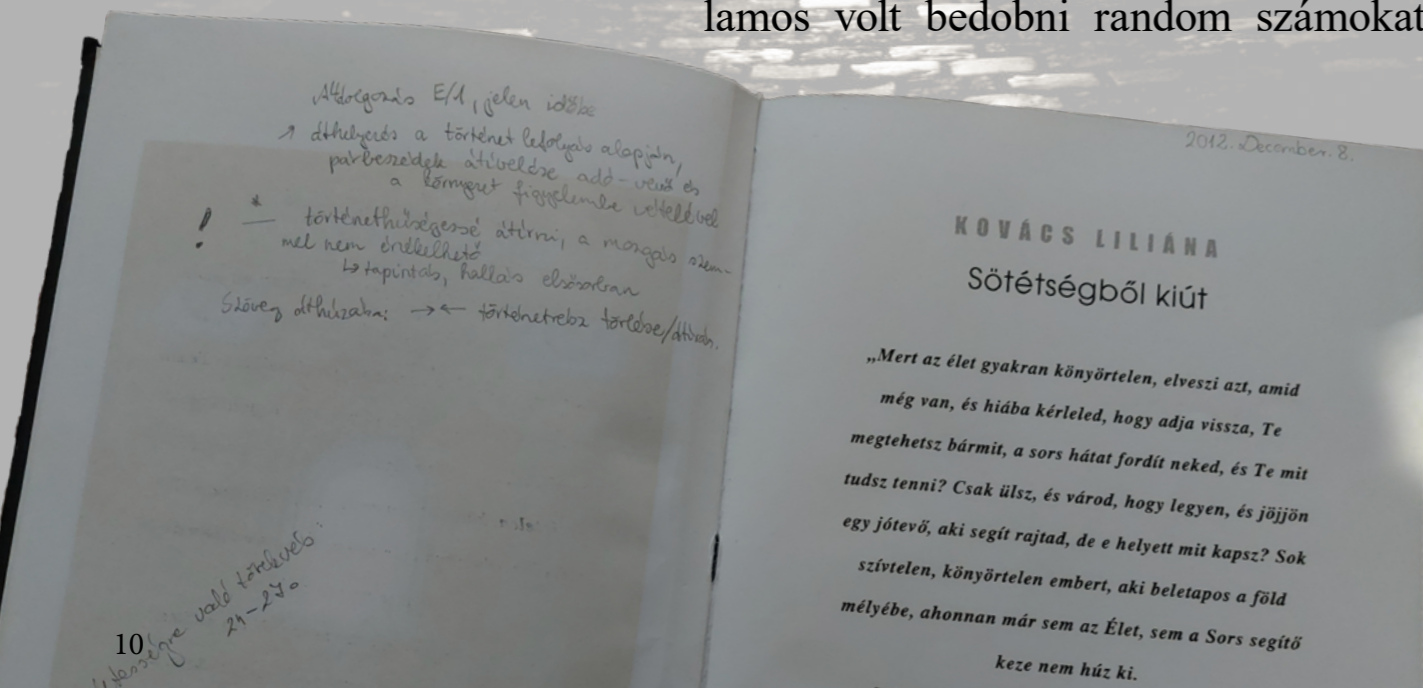 lamos volt bedobni random számokat
Átdolgozás E/1, jelen időbe
↗ áthelyezés a történet lefolyás alapján,
párbeszédek átívelése adó-vevő és
a környezet figyelembe vételével
! * — történethűségessé átírni, a mozgás szem-
mel nem érzékelhető
↳ tapintás, hallás elsősorban
Szöveg áthúzaba: →← történetrész törlése/átírás.
való törekvés
24-27.
10
2012. December. 8.
KOVÁCS LILIÁNA
Sötétségből kiút
„Mert az élet gyakran könyörtelen, elveszi azt, amid
még van, és hiába kérleled, hogy adja vissza, Te
megtehetsz bármit, a sors hátat fordít neked, és Te mit
tudsz tenni? Csak ülsz, és várod, hogy legyen, és jöjjön
egy jótevő, aki segít rajtad, de e helyett mit kapsz? Sok
szívtelen, könyörtelen embert, aki beletapos a föld
mélyébe, ahonnan már sem az Élet, sem a Sors segítő
keze nem húz ki.